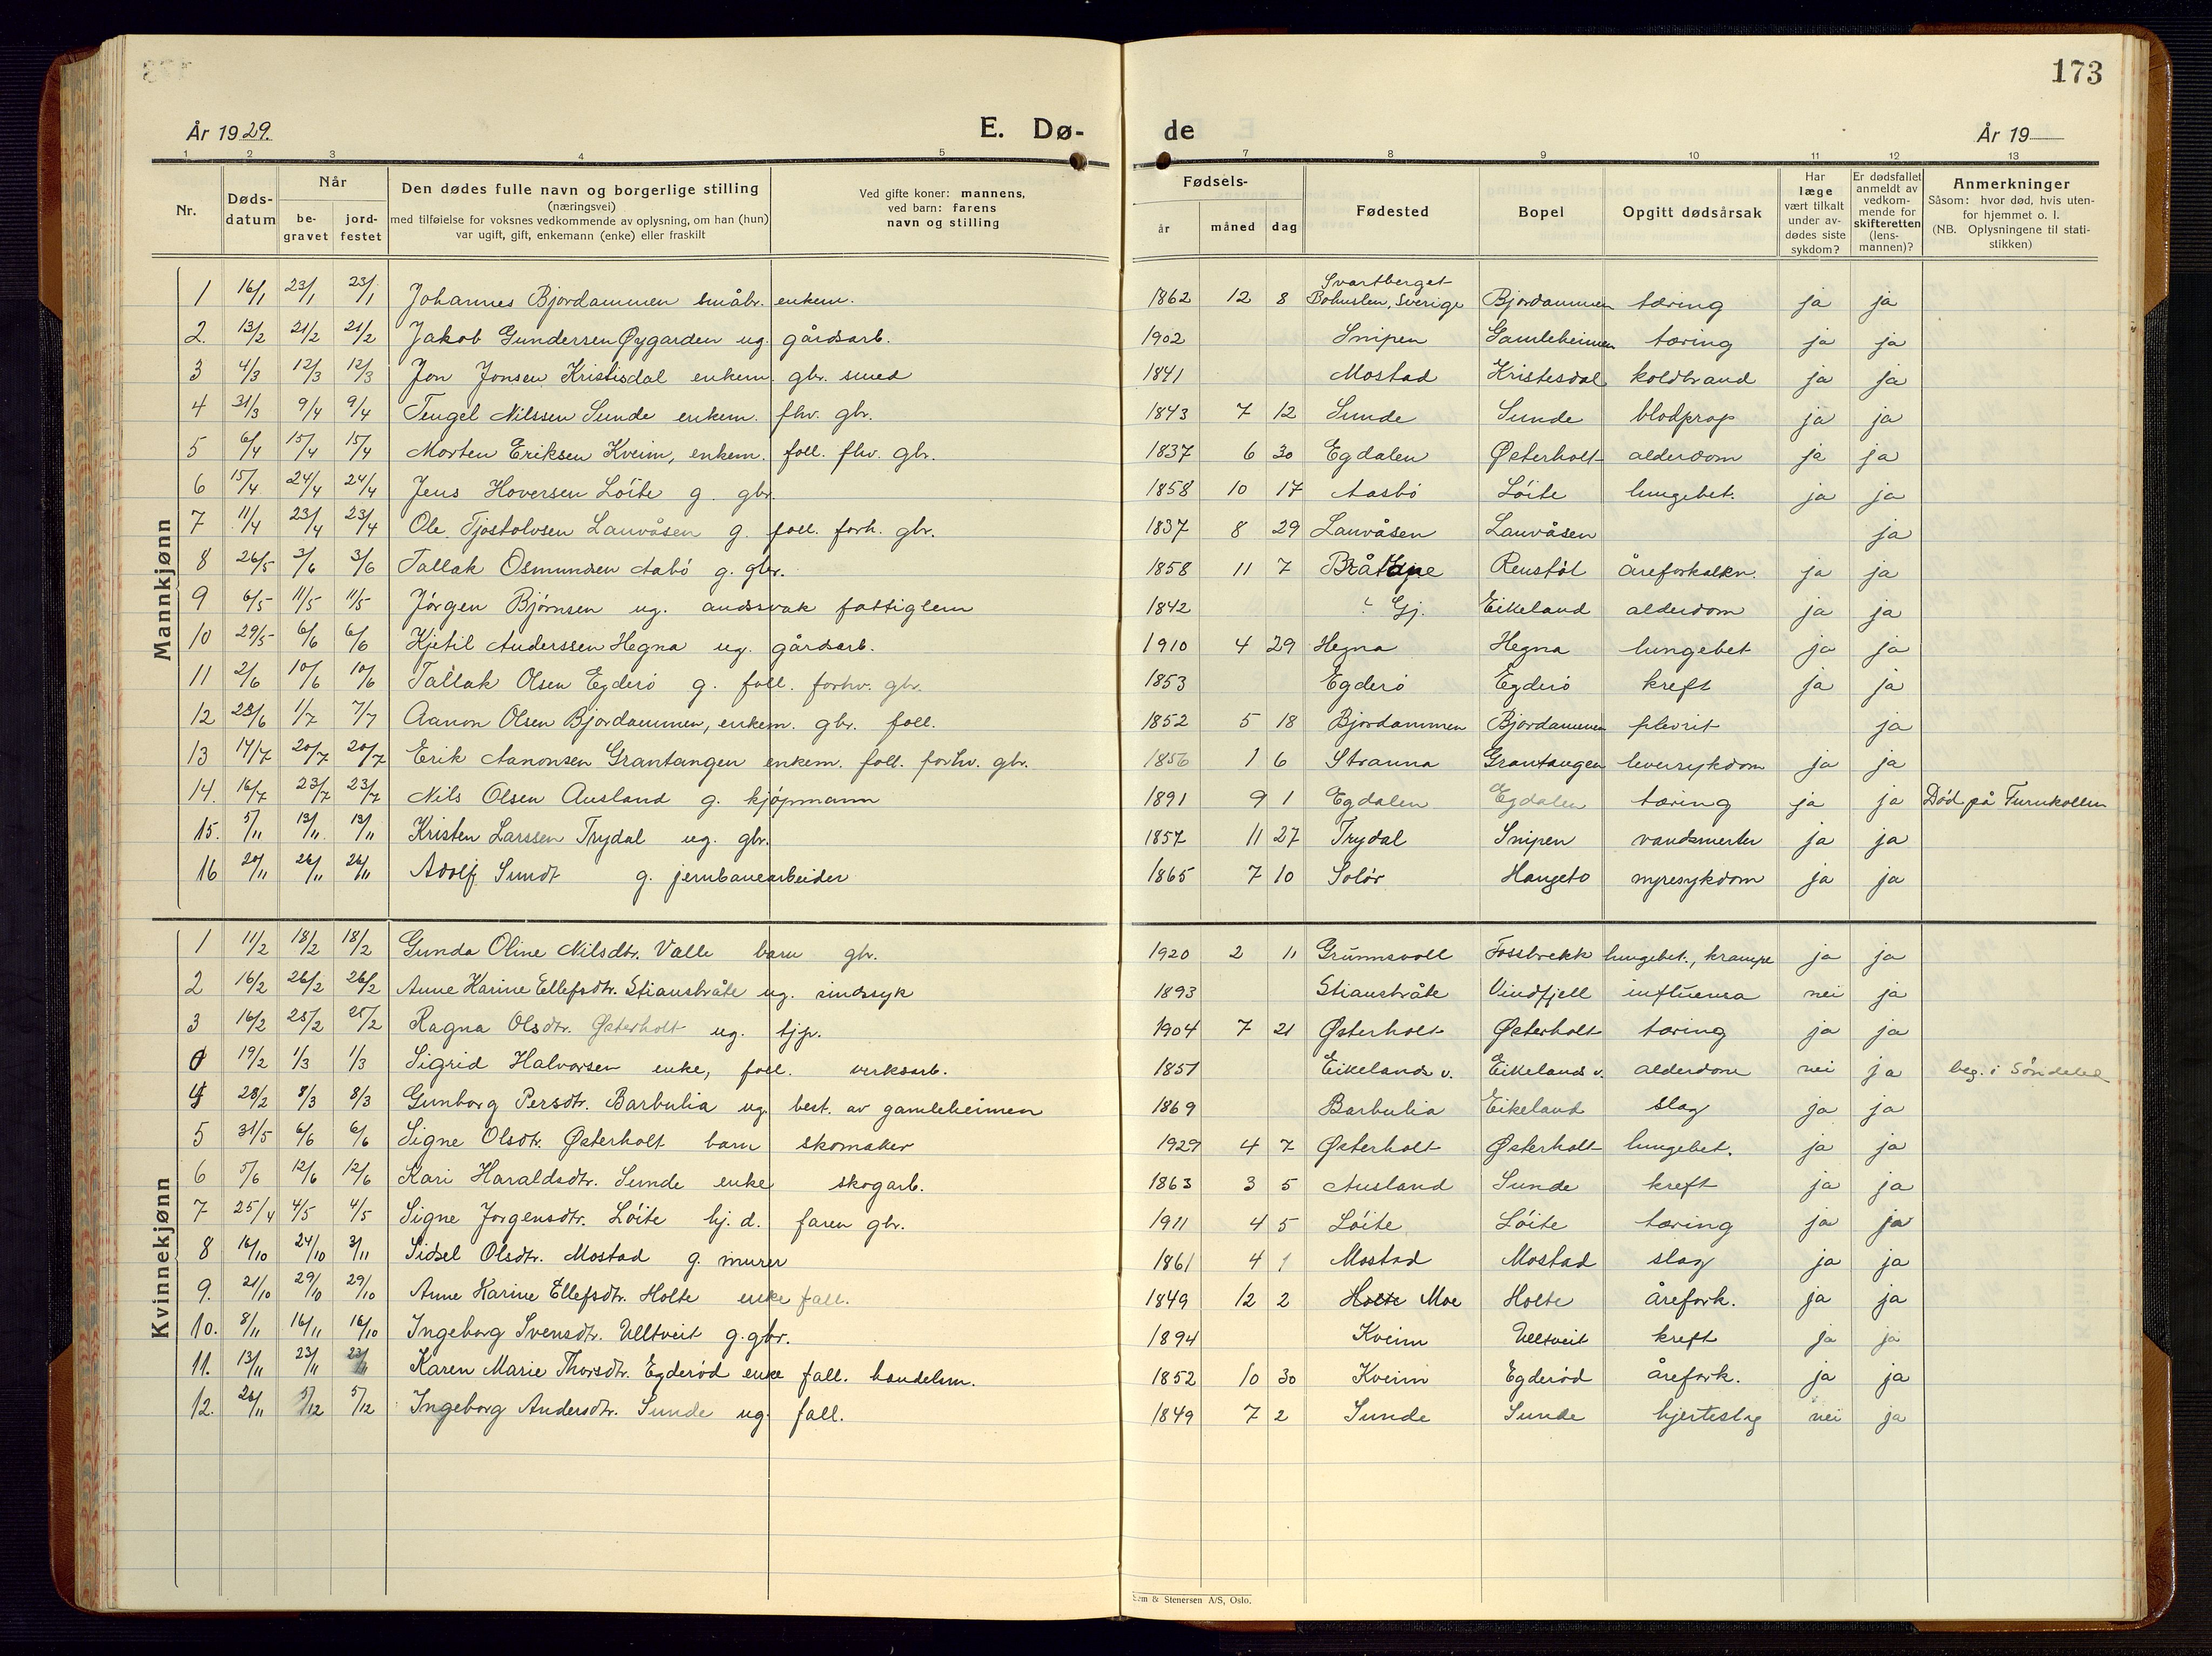 173
År 1929. E. Dø- de År 19
1 2 3 4 5 7 8 9 10 11 12 13
Nr. Døds-datum Når be-gravet jord-festet Den dødes fulle navn og borgerlige stilling (næringsvei) med tilføielse for voksnes vedkommende av oplysning, om han (hun) var ugift, gift, enkemann (enke) eller fraskilt Ved gifte koner: mannens, ved barn: farens navn og stilling Fødsels- år måned dag Fødested Bopel Opgitt dødsårsak Har læge vært tilkalt under av-dødes siste sykdom? Er dødsfallet anmeldt av vedkom-mende for skifteretten (lens-mannen)? Anmerkninger Såsom: hvor død, hvis uten-for hjemmet o. l. (NB. Oplysningene til stati-stikken)
Mannkjønn
1 16/1 23/1 23/1 Johannes Bjordammen småbr. enkem. 1862 12 8 Svartberget Bohuslen, Sverige Bjordammen tæring ja ja
2. 13/2 21/2 21/2 Jakob Gundersen Øygarden ug. gårdsarb. 1902 Snipen Gamleheimen tæring ja ja
3 4/3 12/3 12/3 Jon Jonsen Kristisdal enkem. gbr. smed 1841 Mostad Kristesdal koldbrand ja ja
4 31/3 9/4 9/4 Tengel Nilssen Sunde enkem. fhv. gbr. 1843 7 12 Sunde Sunde blodprop ja ja
5 6/4 15/4 15/4 Morten Eriksen Kveim, enkem. foll. fhv. gbr. 1837 6 30 Egdalen Østerholt alderdom ja ja
6 15/4 24/4 24/4 Jens Hoversen Löite g. gbr. 1858 10 17 Aasbö Löite lungebet. ja ja
7 11/4 23/4 23/4 Ole Tjostolvsen Lauvåsen g. foll. forh. gbr. 1837 8 29 Lauvåsen Lauvåsen ja
8 26/5 3/6 3/6 Tallak Osmundsen Aabö g. gbr. 1858 11 7 Renstöl åreforkalkn. ja ja
9 6/5 11/5 11/5 Jörgen Bjørnsen ug. andssvak fattiglem 1842 ? Gj. Eikeland alderdom ja ja
10 29/5 6/6 6/6 Kjetil Anderssen Hegna ug. gårdsarb. 1910 4 29 Hegna Hegna lungebet ja ja
11 2/6 10/6 10/6 Tallak Olsen Egderö g. foll. forhv. gbr. 1853 Egderö Egderö kreft ja ja
12 23/6 1/7 7/7 Aanon Olsen Bjordammen, enkem. gbr. foll. 1852 5 18 Bjordammen Bjordammen plevrit ja
13 14/7 20/7 20/7 Erik Aanonsen Grantangen enkem. foll. forhv. gbr. 1856 1 6 Stranna Grantangen leversykdom ja ja
14. 16/7 23/7 23/7 Nils Olsen Ausland g. kjöpmann 1891 9 1 Egdalen Egdalen tæring ja ja Död på Furukollen
15. 5/11 13/11 13/11 Kristen Larssen Trydal ug. gbr. 1857 11 27 Trydal Snipen vandsmerter ja ja
16 20/11 26/11 26/11 Adolf Sundt g. jernbanearbeider 1865 7 10 Solör Haugeto nyresykdom ja ja
Kvinnekjønn
1 11/2 18/2 18/2 Gunda Oline Nilsdtr. Valle barn gbr. 1920 2 11 Grunnsvoll Fossbrekk lungebet., krampe ja ja
2 16/2 26/2 26/2 Anne Karine Ellefsdtr. Stiansbråte ug. sindssyk 1893 Stiansbråte Vindfjell influensa nei ja
3 16/2 25/2 25/2 Ragna Olsdtr. Østerholt ug. tjp. 1904 7 21 Østerholt Østerholt tæring ja ja
0 19/2 1/3 1/3 Sigrid Halvorsen enke, foll. verksarb. 1851 Eikelands v. Eikelands v. alderdom nei ja beg. i Söndeled
4 28/2 8/3 8/3 Gunborg Persdtr. Barbulia ug. best. av gamleheimen 1869 Barbulia Eikeland slag ja ja
5 31/5 6/6 6/6 Signe Olsdtr. Østerholt barn skomaker 1929 4 7 Østerholt Østerholt lungebet. ja ja
6 5/6 12/6 12/6 Kari Haraldsdtr. Sunde enke skogarb. 1863 3 5 Ausland Sunde kreft ja ja
7 25/4 4/5 4/5 Signe Jorgensdtr. Löite hj. d. faren gbr. 1911 4 5 Löite Löite tæring ja ja
8 16/10 24/10 3/11 Sidsel Olsdtr. Mostad g. murer 1861 4 1 Mostad Mostad slag ja ja
9. 21/10 29/10 29/10 Anne Karine Ellefsdtr. Holte enke fall. 1849 12 2 Holte Moe Holte årefork. ja ja
10. 8/11 16/11 16/10 Ingeborg Svensdtr. Ulltveit g. gbr. 1894 Kveim Ulltveit kreft ja ja
11. 13/11 23/11 23/11 Karen Marie Thorsdtr. Egderöd enke fall. handelsm. 1852 10 30 Kveim Egderöd årefork. ja ja
12. 26/11 5/12 5/12 Ingeborg Andersdtr. Sunde ug. fall. 1849 7 2 Sunde Sunde hjerteslag nei ja
Sem & Stenersen A/S, Oslo.